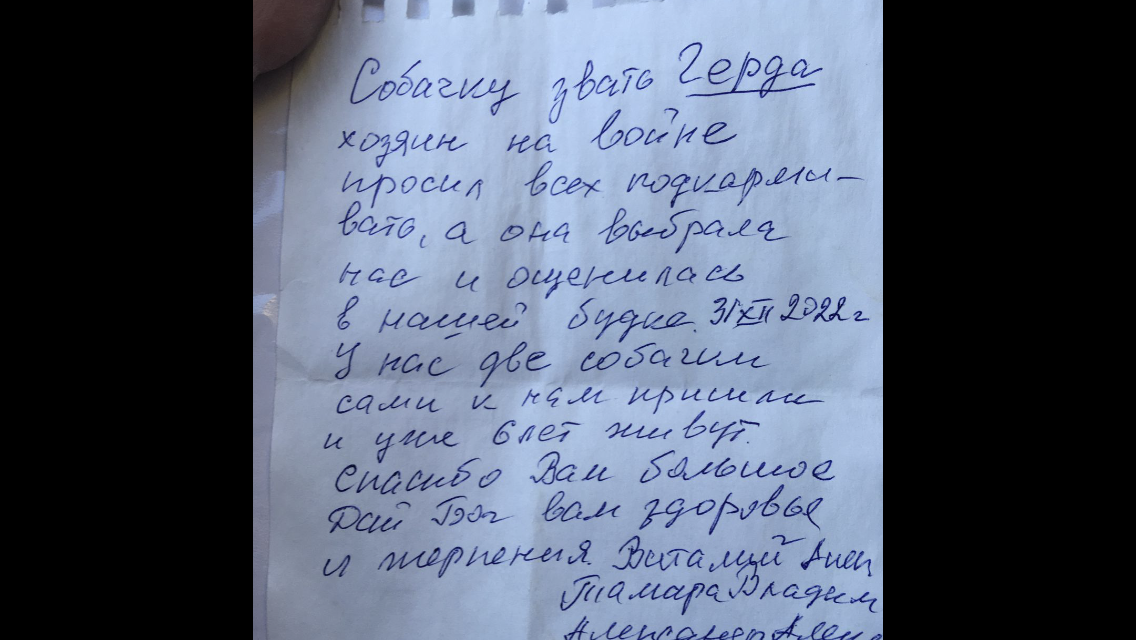 Собачку звать Герда
хозяин на войне
просил всех подкарми-
вать, а она выбрала
нас и ощенилась
в нашей будке 31 XII 2022 г
У нас две собачки
сами к нам пришли
и уже 6 лет живут.
Спасибо Вам большое
Дай Бог вам здоровья
и терпения. Виталий Алек
Тамара Владим
Александр Алекс